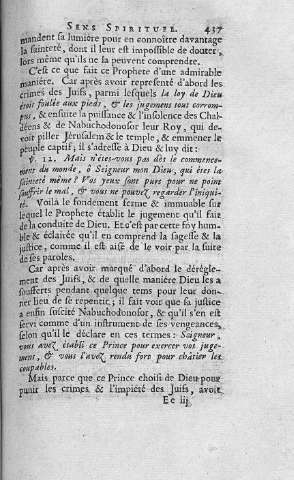 SENS SPIRITUEL. 437
mandent sa lumiére pour en connoître davantage
la sainteté, dont il leur est impossible de douter,
lors même qu'ils ne la peuvent comprendre.
C'est ce que fait ce Prophete d'une admirable
maniére. Car aprés avoir representé d'abord les
crimes des Juifs, parmi lesquels la loy de Dieu
étroit foulée aux pieds, & les jugemens tout corrom-
pus, & ensuite la puissance & l'insolence des Chal-
déens & de Nabuchodonosor leur Roy, qui de-
voit piller Jerusalem & le temple, & emmener le
peuple captif, il s'adresse à Dieu & luy dit:
℣. 12. Mais n'étes-vous pas dès le commence-
ment du monde, ô Seigneur mon Dieu, qui êtes la
sainteté même? Vos yeux sont purs pour ne point
souffrir le mal, & vous ne pouvez regarder l'iniqui-
té. Voilà le fondement ferme & immuable sur
lequel le Prophete établit le jugement qu'il fait
de la conduite de Dieu. Et c'est par cette foy hum-
ble & éclairée qu'il en comprend la sagesse & la
justice, comme il est aisé de le voir par la suite
de ses paroles.
Car aprés avoir marqué d'abord le déregle-
ment des Juifs, & de quelle maniére Dieu les a
soufferts pendant quelque tems pour leur don-
ner lieu de se repentir; il fait voir que sa justice
a enfin suscité Nabuchodonosor, & qu'il s'en est
servi comme d'un instrument de ses vengeances,
selon qu'il le déclare en ces termes: Seigneur,
vous avez établi ce Prince pour exercer vos juge-
mens, & vous l'avez rendu fort pour châtier les
coupables.
Mais parce que ce Prince choisi de Dieu pour
punir les crimes & l'impiété des Juifs, avoit
Ee iij